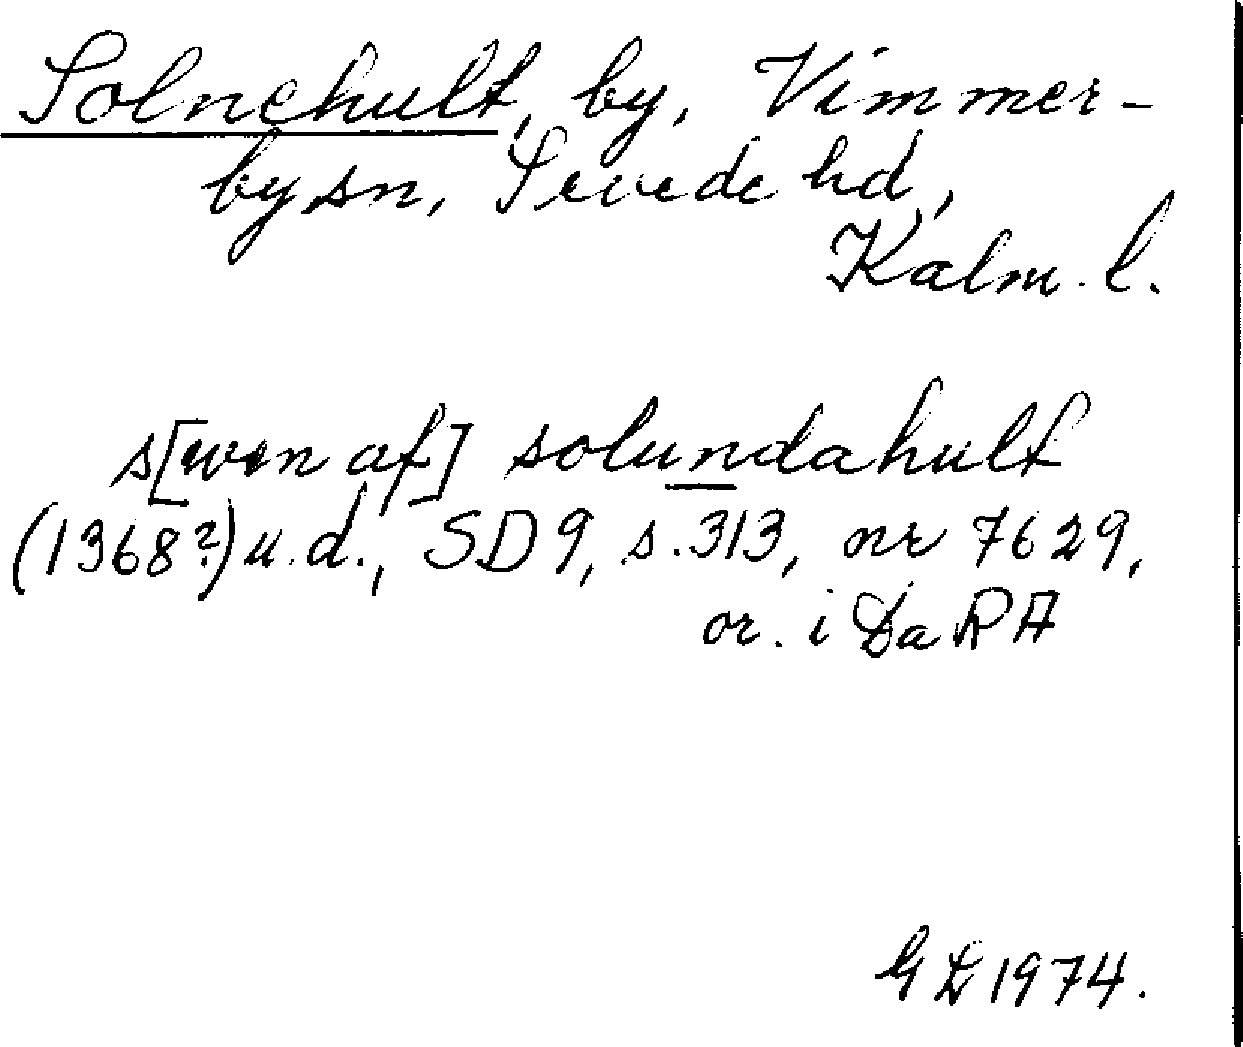 Solnehult, by, Vimmer-
by sn, Sevede hd,
Kalm. l.
s[wen af] solundahult
(1368?) u.d., SD 9, s. 313, nr 7629,
or. i DaRA
GL 1974.